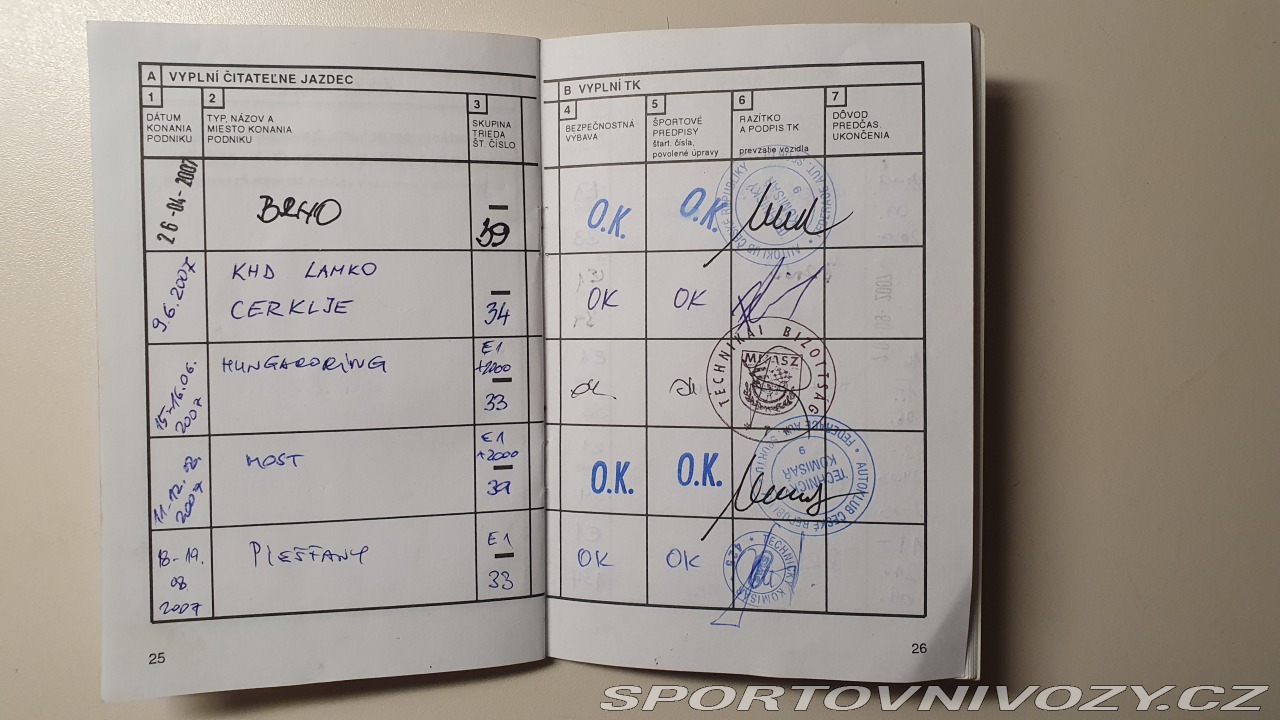 A VYPLNÍ ČITATEĽNE JAZDEC
B VYPLNÍ TK
1
DÁTUM
KONANIA
PODNIKU
2
TYP, NÁZOV A
MIESTO KONANIA
PODNIKU
3
SKUPINA
TRIEDA
ŠT. ČÍSLO
4
BEZPEČNOSTNÁ
VÝBAVA
5
ŠPORTOVÉ
PREDPISY
štart. čísla,
povolené úpravy
6
RAZÍTKO
A PODPIS TK
prevzatie vozidla
7
DÔVOD
PREDČAS.
UKONČENIA
26-04-2007
BRNO
39
O.K.
O.K.
AUTOKLUB ČESKÉ REPUBLIKY
9.6.2007
KHD LAMKO
CERKLJE
34
OK
OK
15-16.06.
2007
HUNGARORING
E1
+2000
33
ok
ok
TECHNIKAI BIZOTTSÁG
MNASZ
11-12.
2007
MOST
E1
+2000
39
O.K.
O.K.
AUTOKLUB ČESKÉ REPUBLIKY
FEDERACE AUT. SPORTU
TECHNICKÝ
KOMISAŘ
9
18-19.
08
2007
PIEŠŤANY
E1
33
OK
OK
TECHNICKÝ KOMISÁR
25
26
SPORTOVNIVOZY.CZ